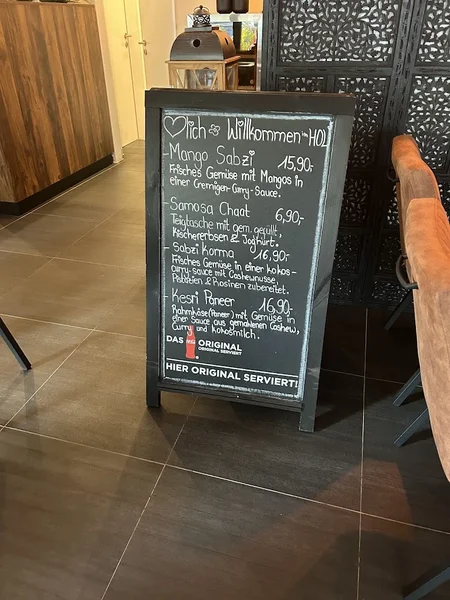 ♡lich Willkommen im HOI
Mango Sabzi 15,90-
Frisches Gemüse mit Mangos in
einer Cremigen-Curry-Sauce.
Samosa Chaat 6,90,-
Teigtasche mit gem. gefüllt
Kischererbsen & Joghurt.
Sabzi Korma 16,90-
Frisches Gemüse in einer kokos-
curry-sauce mit Cashewnüsse,
Pistatien & Rosinen zubereitet.
Kesri Paneer 16,90-
Rahmkäse (Paneer) mit Gemüse in
einer Sauce aus gemahlenen Cashew,
Curry und kokosmilch.
DAS ORIGINAL
ORIGINAL SERVIERT
HIER ORIGINAL SERVIERT!